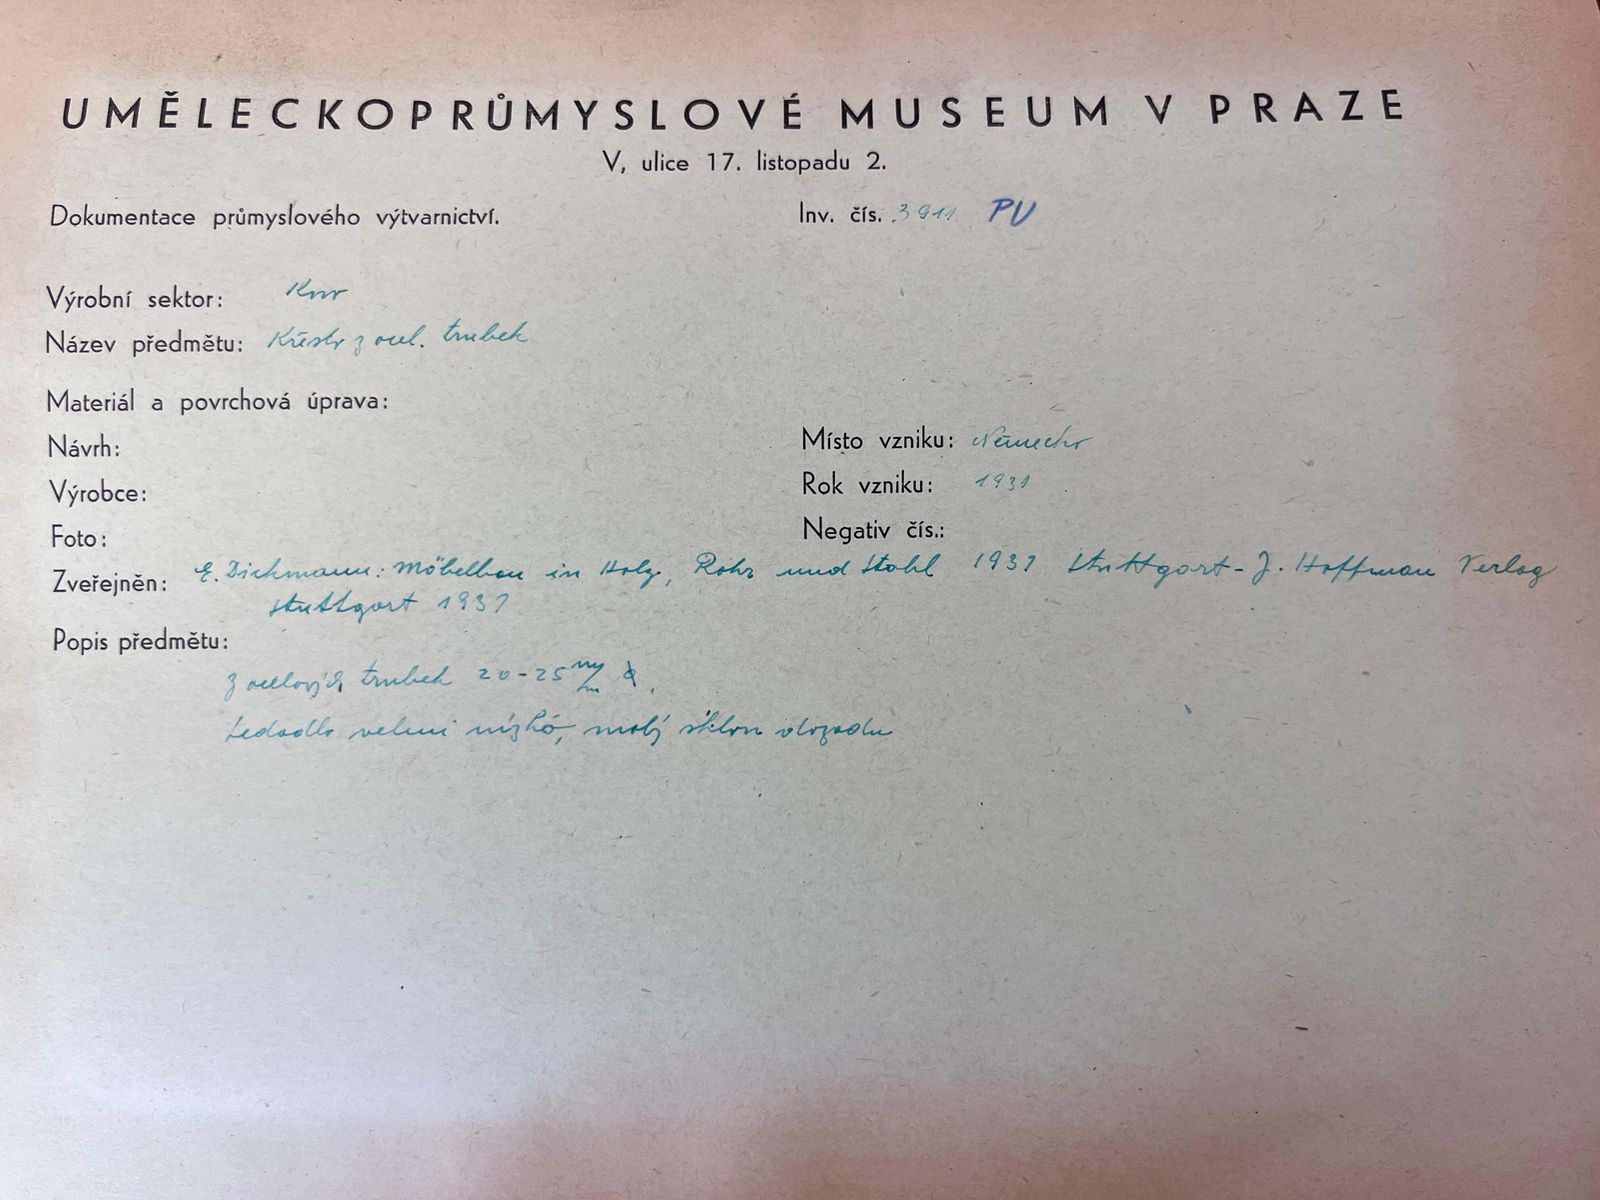 UMĚLECKOPRŮMYSLOVÉ MUSEUM V PRAZE
V, ulice 17. listopadu 2.
Dokumentace průmyslového výtvarnictví. Inv. čís. 3911 PU
Výrobní sektor: Kov
Název předmětu: Křeslo z ocel. trubek
Materiál a povrchová úprava:
Návrh: Místo vzniku: Německo
Výrobce: Rok vzniku: 1931
Foto: Negativ čís.:
Zveřejněn: E. Dickmann: Möbelbau in Holz, Rohr und Stahl 1931 Stuttgart - J. Hoffman Verlag
Stuttgart 1931
Popis předmětu:
z ocelových trubek 20-25 m/m
Sedadlo velmi nízké, malý sklon dozadu